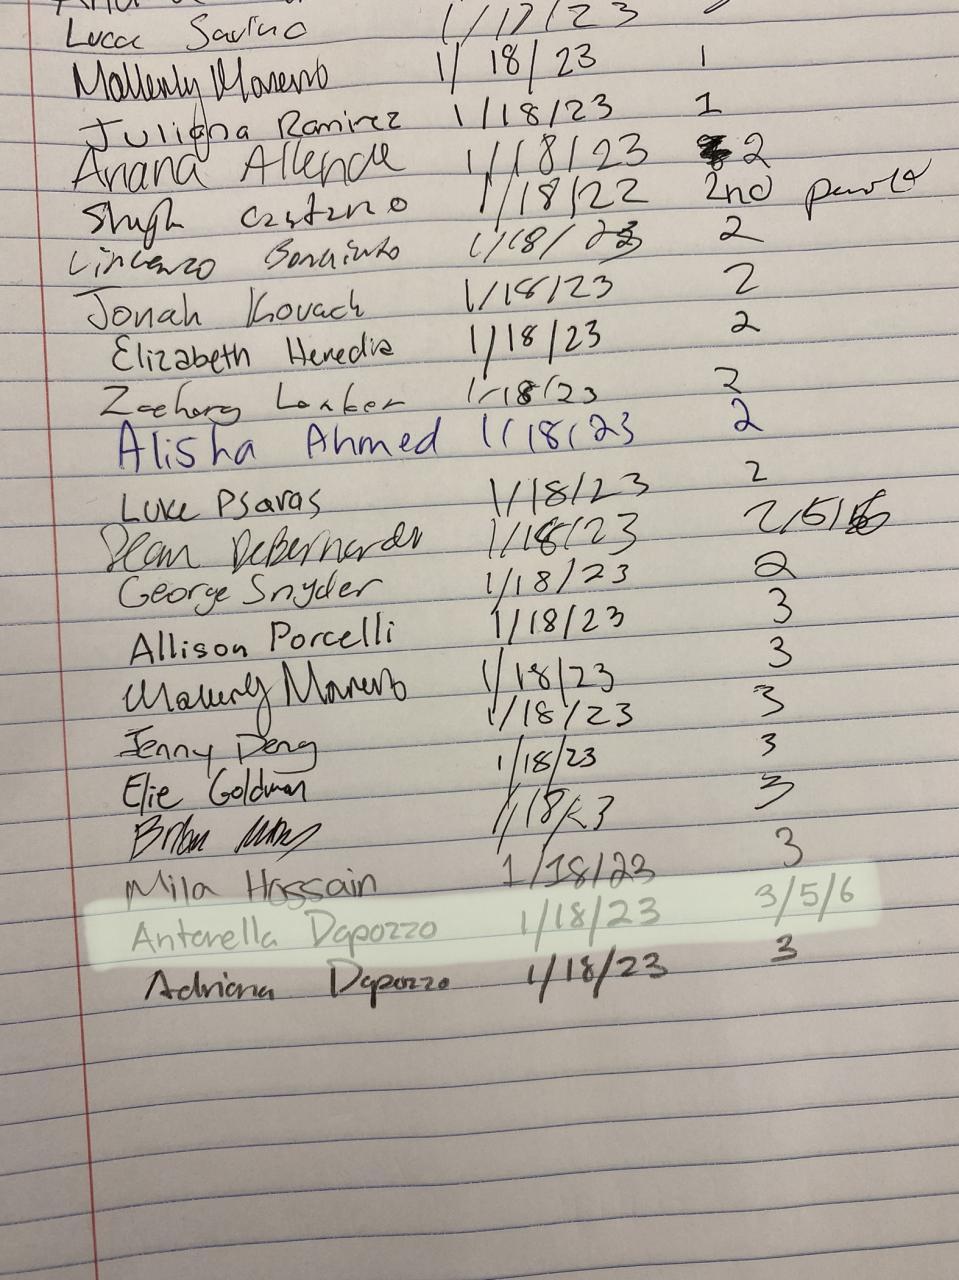 Lucca Savino 1/17/23
Mallerly Moreno 1/18/23 1
Juliana Ramirez 1/18/23 1
Ariana Allende 1/18/23 2
Castano 1/18/22 2nd period
Vincenzo 1/18/23 2
Jonah Kovach 1/18/23 2
Elizabeth Heredia 1/18/23 2
Zachary 1/18/23 2
Alisha Ahmed 1/18/23 2
Luke Psaras 1/18/23 2
Dean DeBernardo 1/18/23 2/5/6
George Snyder 1/18/23 2
Allison Porcelli 1/18/23 3
Mallerly Moreno 1/18/23 3
Jenny Deng 1/18/23 3
Elie Goldman 1/18/23 3
Brian 1/18/23 3
Mila Hossain 1/18/23 3
Antonella Dapozzo 1/18/23 3/5/6
Adriana Dapozzo 1/18/23 3